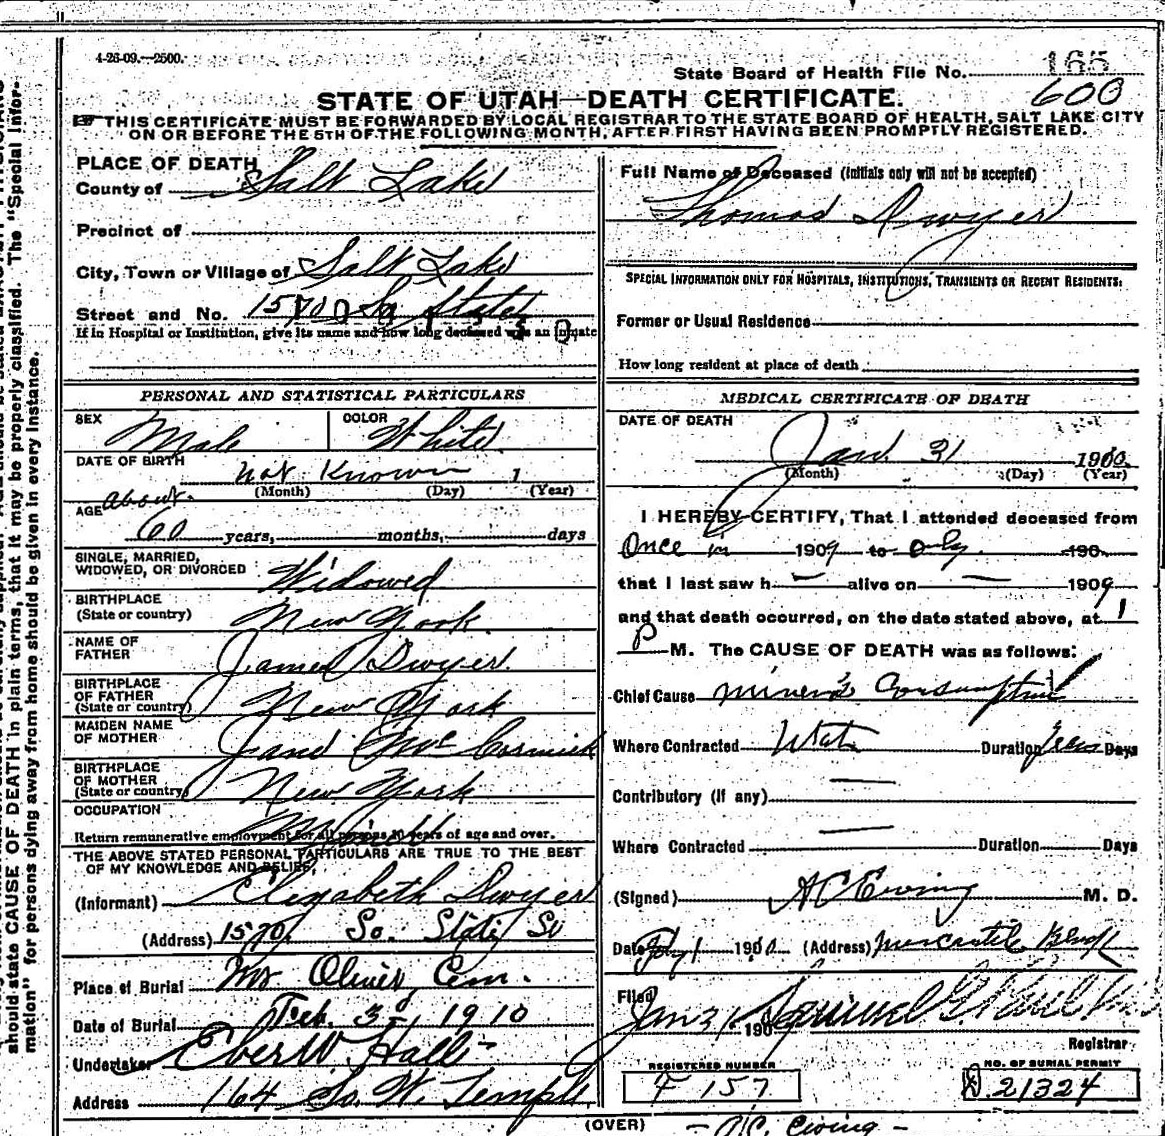 4-26-09.—2500.
State Board of Health File No. 165
600
STATE OF UTAH—DEATH CERTIFICATE.
THIS CERTIFICATE MUST BE FORWARDED BY LOCAL REGISTRAR TO THE STATE BOARD OF HEALTH, SALT LAKE CITY
ON OR BEFORE THE 5TH OF THE FOLLOWING MONTH, AFTER FIRST HAVING BEEN PROMPTLY REGISTERED.
PLACE OF DEATH
County of Salt Lake
Precinct of
City, Town or Village of Salt Lake
Street and No. 1570 So State
If in Hospital or Institution, give its name and how long deceased was an inmate
PERSONAL AND STATISTICAL PARTICULARS
SEX Male COLOR White
DATE OF BIRTH not Known 1
(Month) (Day) (Year)
AGE about
60 years, months, days
SINGLE, MARRIED,
WIDOWED, OR DIVORCED Widowed
BIRTHPLACE
(State or country) New York
NAME OF
FATHER James Dwyer
BIRTHPLACE
OF FATHER
(State or country) New York
MAIDEN NAME
OF MOTHER Jane McCormick
BIRTHPLACE
OF MOTHER
(State or country) New York
OCCUPATION
Return remunerative employment for all persons 10 years of age and over.
THE ABOVE STATED PERSONAL PARTICULARS ARE TRUE TO THE BEST
OF MY KNOWLEDGE AND BELIEF,
(Informant) Elizabeth Dwyer
(Address) 1570 So. State St
Place of Burial Mt Olivet Cem.
Date of Burial Feb. 3, 1910
Undertaker Eber W Hall
Address 164 So. W. Temple
Full Name of Deceased (Initials only will not be accepted)
Thomas Dwyer
SPECIAL INFORMATION ONLY FOR HOSPITALS, INSTITUTIONS, TRANSIENTS OR RECENT RESIDENTS:
Former or Usual Residence
How long resident at place of death
MEDICAL CERTIFICATE OF DEATH
DATE OF DEATH
Jan. 31 1910.
(Month) (Day) (Year)
I HEREBY CERTIFY, That I attended deceased from
Once in 1909 to only 190
that I last saw h — alive on — 1909
and that death occurred, on the date stated above, at 1
P M. The CAUSE OF DEATH was as follows:
Chief Cause miner's Consumption
Where Contracted Utah Duration years Days
Contributory (If any) —
Where Contracted — Duration Days
(Signed) A C Ewing M. D.
Date Feby 1 1910 (Address) Mercantile Block
Filed Jan 31 190
Registrar
REGISTERED NUMBER
F 157
NO. OF BURIAL PERMIT
21324
(OVER) - A.C. Ewing -
should state CAUSE OF DEATH in plain terms, that it may be properly classified. The "Special Infor-
mation" for persons dying away from home should be given in every instance.